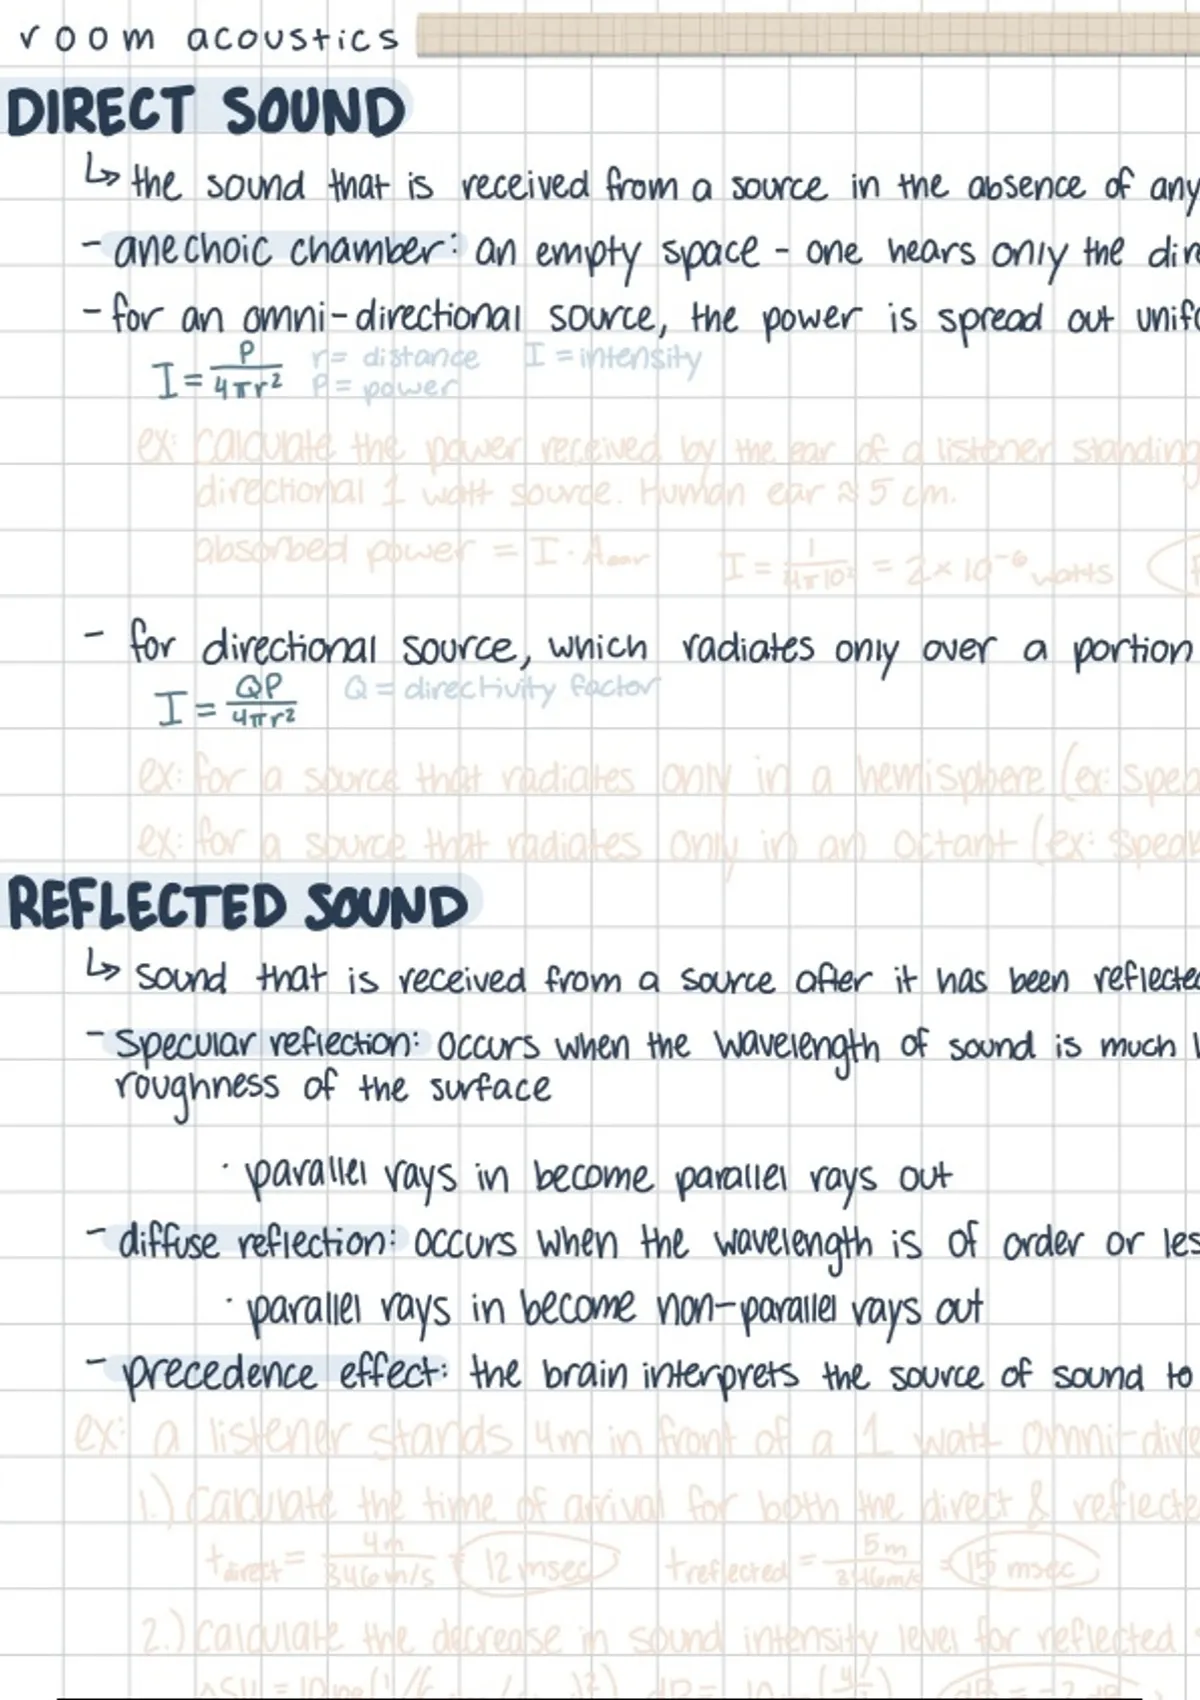 room acoustics
DIRECT SOUND
↳ the sound that is received from a source in the absence of any
- anechoic chamber: an empty space - one hears only the dire
- for an omni-directional source, the power is spread out unifo
I = P/4πr² r = distance I = intensity
P = power
ex: Calculate the power received by the ear of a listener standing
directional 1 watt source. Human ear ≈ 5 cm.
absorbed power = I · Aear I = 1/4π10² = 2 × 10⁻⁶ watts
- for directional source, which radiates only over a portion
I = QP/4πr² Q = directivity factor
ex: for a source that radiates only in a hemisphere (ex: spea
ex: for a source that radiates only in an octant (ex: speak
REFLECTED SOUND
↳ sound that is received from a source after it has been reflected
- specular reflection: occurs when the wavelength of sound is much l
roughness of the surface
· parallel rays in become parallel rays out
- diffuse reflection: occurs when the wavelength is of order or les
· parallel rays in become non-parallel rays out
- precedence effect: the brain interprets the source of sound to
ex: a listener stands 4m in front of a 1 watt omni-dire
1.) Calculate the time of arrival for both the direct & reflecte
tdirect = 4m/346m/s = 12 msec treflected = 5m/346m/s = 15 msec
2.) Calculate the decrease in sound intensity level for reflected